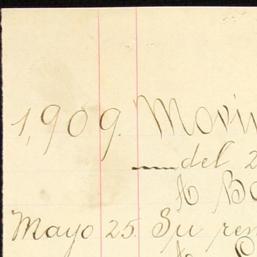 1,909. Movi
del 2
A Bo
Mayo 25. Su rem